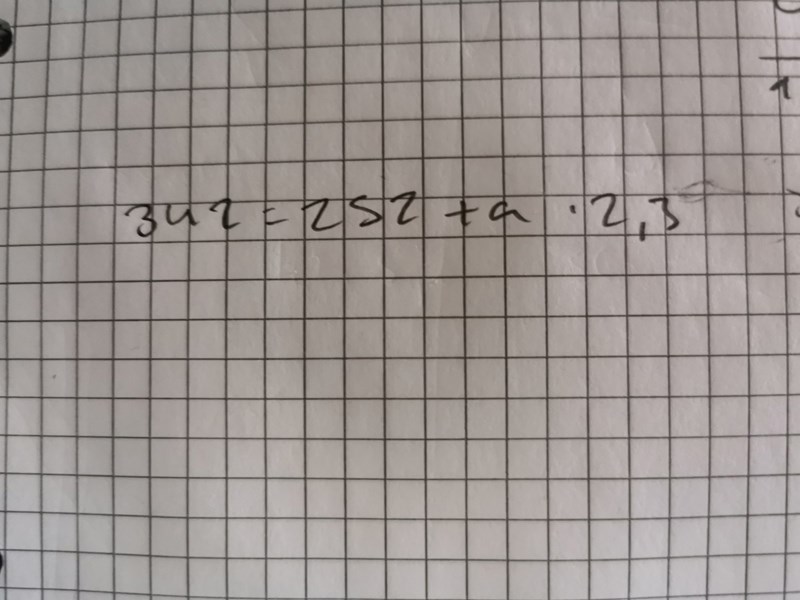 342 = 252 + a · 2,3